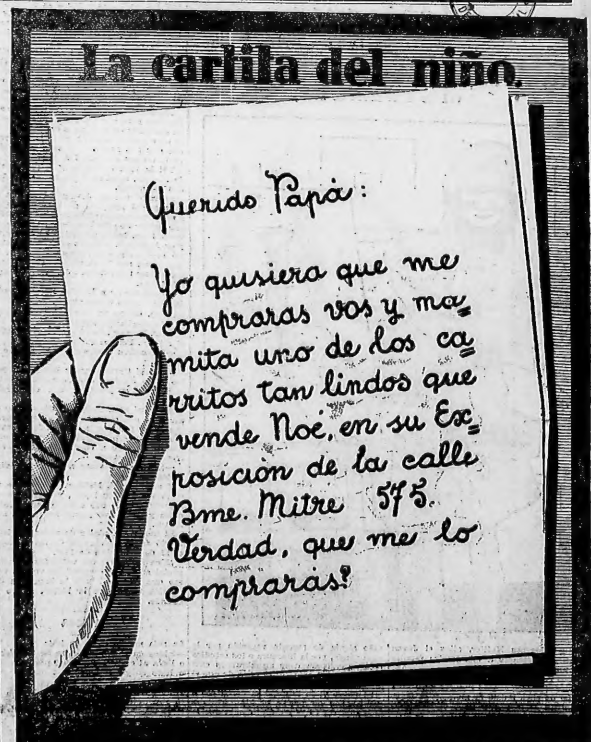 La cartita del niño.
Querido Papá:
Yo quisiera que me
compraras vos y ma=
mita uno de los ca=
rritos tan lindos que
vende Noé, en su Ex=
posición de la calle
Bme. Mitre 575.
Verdad, que me lo
comprarás?